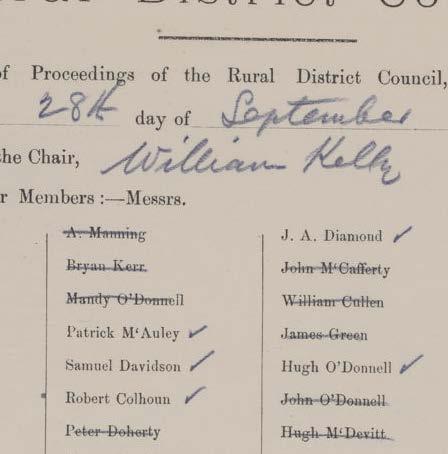 of Proceedings of the Rural District Council,
28th day of September
the Chair, William Kelly
r Members :—Messrs.
A. Manning
Bryan Kerr.
Mandy O'Donnell
Patrick M'Auley ✓
Samuel Davidson ✓
Robert Colhoun ✓
Peter Doherty
J. A. Diamond ✓
John M'Cafferty
William Cullen
James Green
Hugh O'Donnell ✓
John O'Donnell
Hugh M'Devitt.